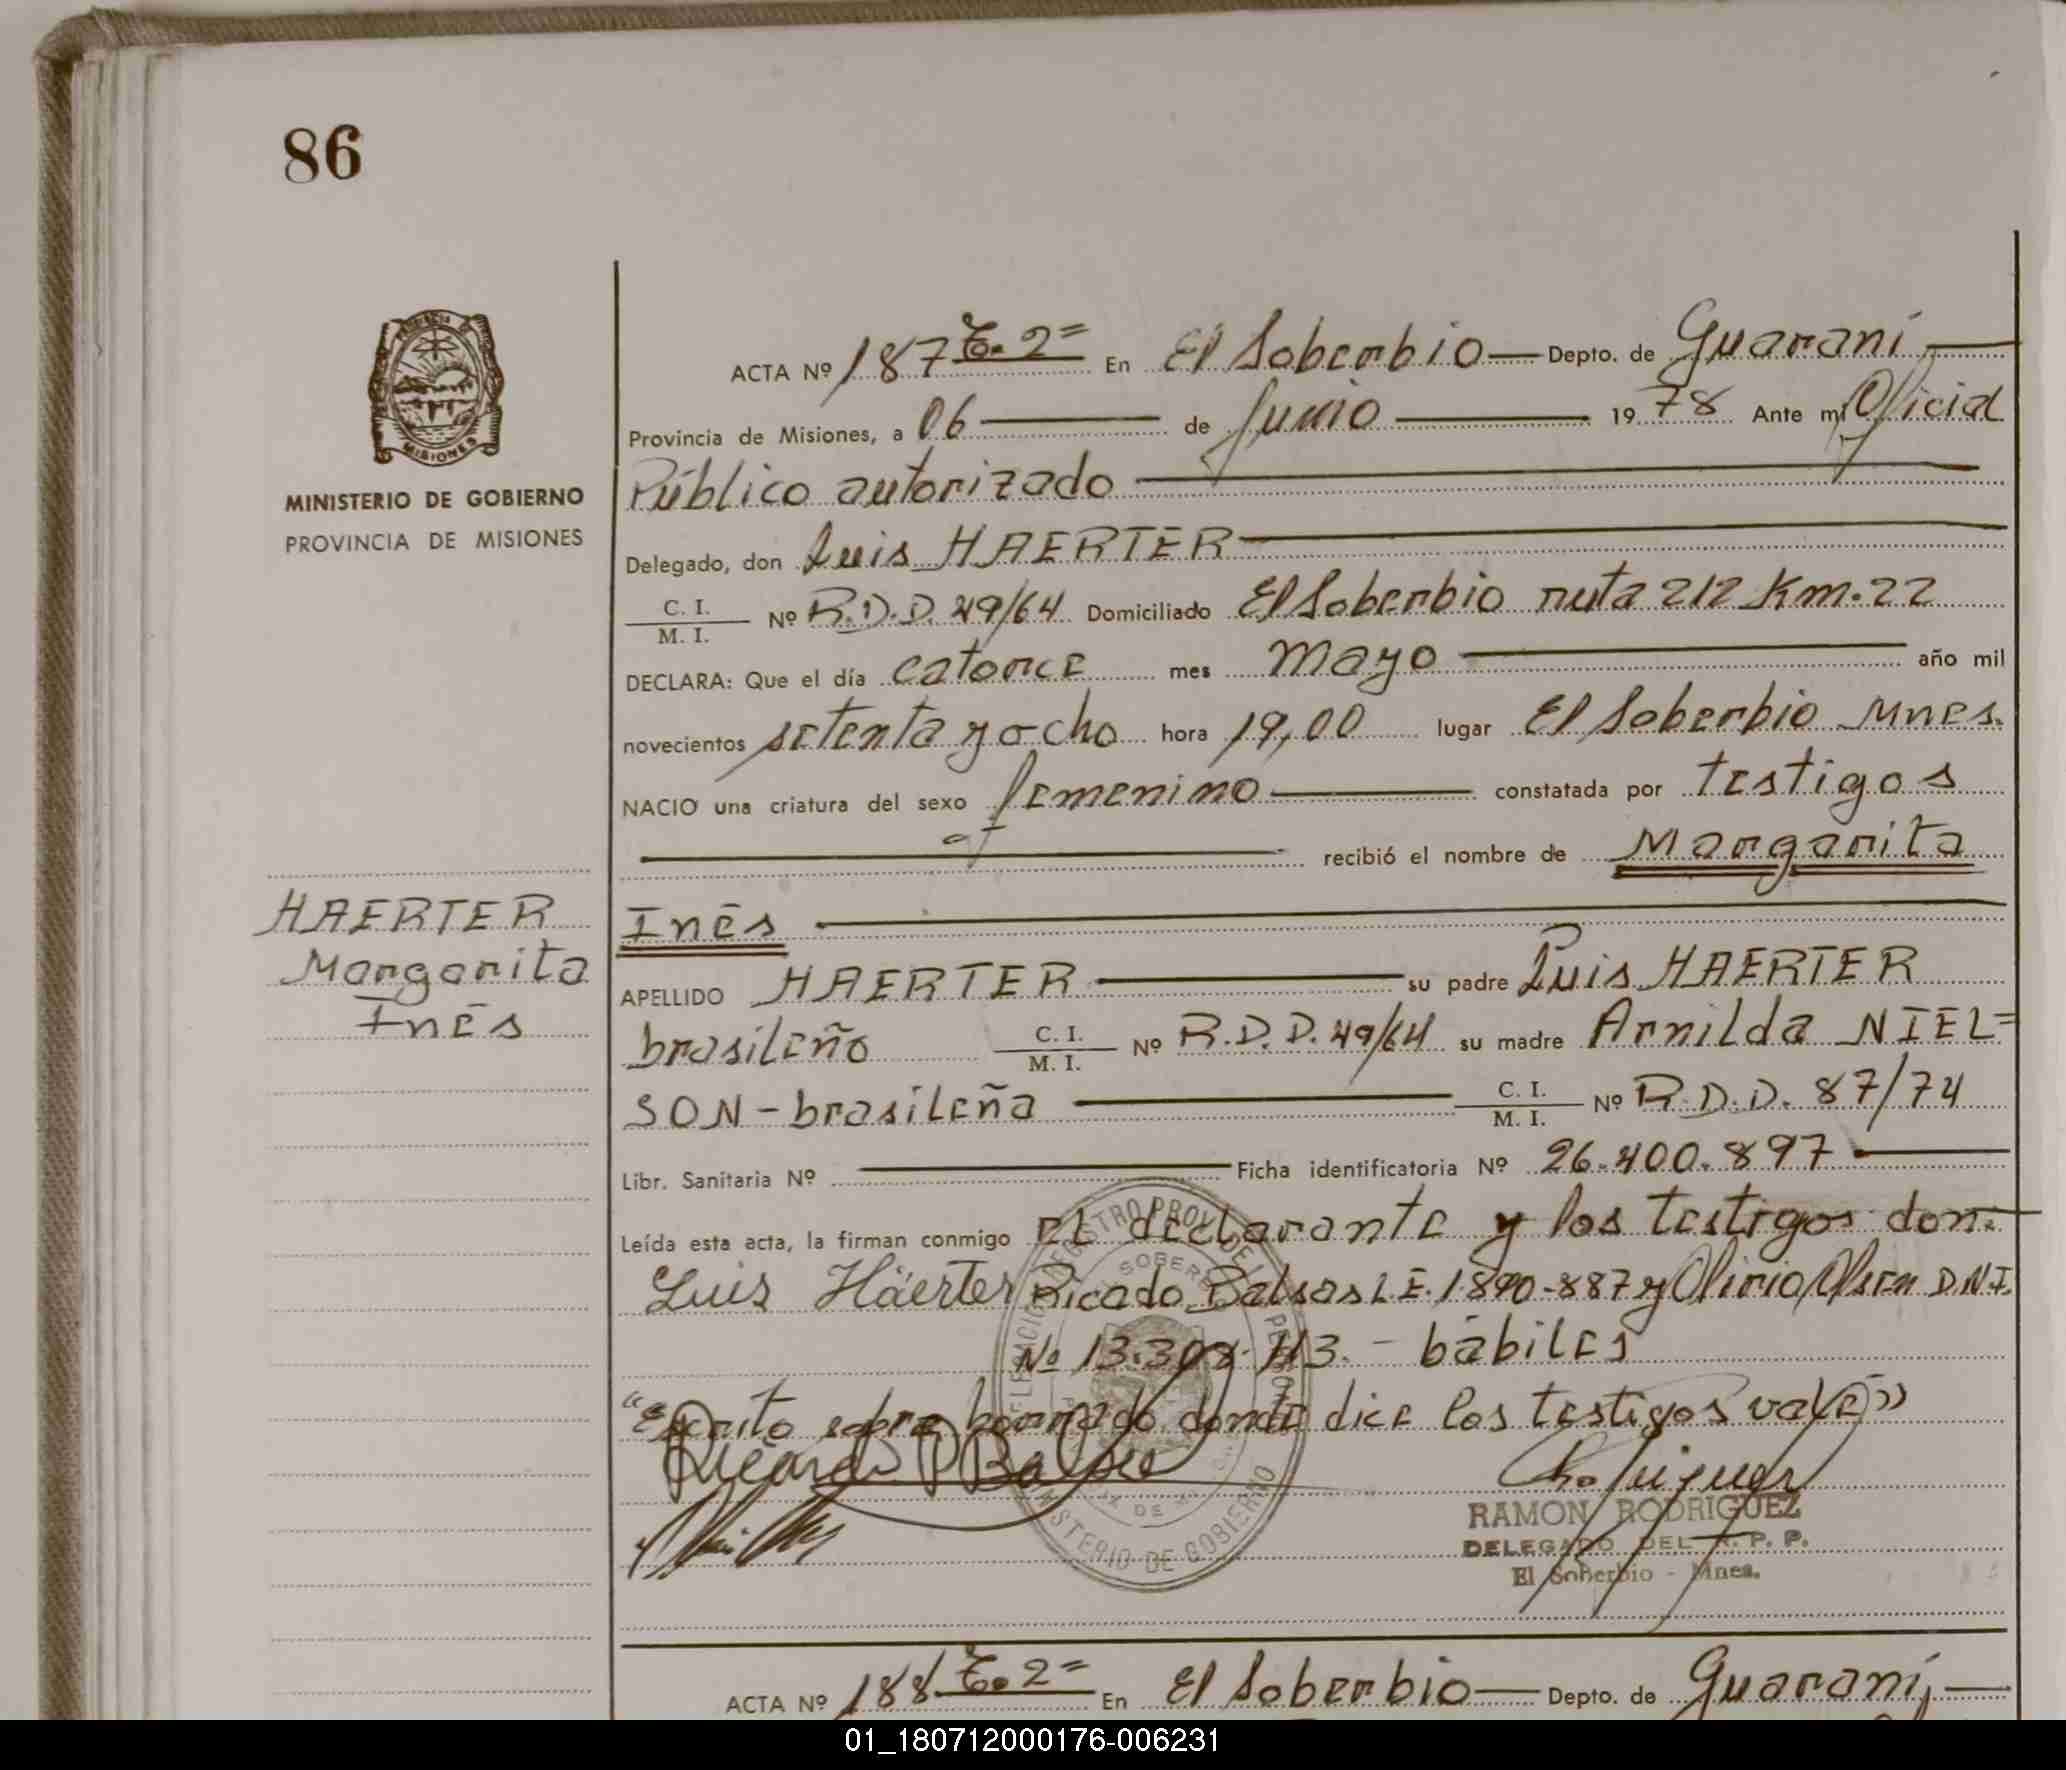 86
ACTA Nº 187 T. 2= En El Soberbio — Depto. de Guaraní —
Provincia de Misiones, a 06 — de Junio — 1978 Ante mí Oficial
Público autorizado —
Delegado, don Luis HAERTER —
C. I. / M. I. Nº R.D.D. 49/64 Domiciliado El Soberbio ruta 212 Km. 22
DECLARA: Que el día catorce mes Mayo — año mil
novecientos setenta y ocho hora 19,00 lugar El Soberbio Mnes.
NACIO una criatura del sexo femenino — constatada por testigos
MINISTERIO DE GOBIERNO
PROVINCIA DE MISIONES
MISIONES
— recibió el nombre de Margarita
Inés —
HAERTER
Margarita
Inés
APELLIDO HAERTER — su padre Luis HAERTER
brasileño C. I. / M. I. Nº R.D.D. 49/64 su madre Arnilda NIEL=
SON - brasileña — C. I. / M. I. Nº R.D.D. 87/74
Libr. Sanitaria Nº — Ficha identificatoria Nº 26.400.897 —
Leída esta acta, la firman conmigo El declarante y los testigos don.
Luis Häerter Ricado Balsas L.E. 1890-887 y Olirio Olsen D.N.I.
Nº 13.308.113. - bábiles
"Escrito sobre borrado donde dice los testigos vale"
Ricardo Balsas
RAMON RODRIGUEZ
DELEGADO DEL R. P. P.
El Soberbio - Mnes.
MINISTERIO DE GOBIERNO
ACTA Nº 188 T. 2= En El Soberbio — Depto. de Guaraní, —
01_180712000176-006231